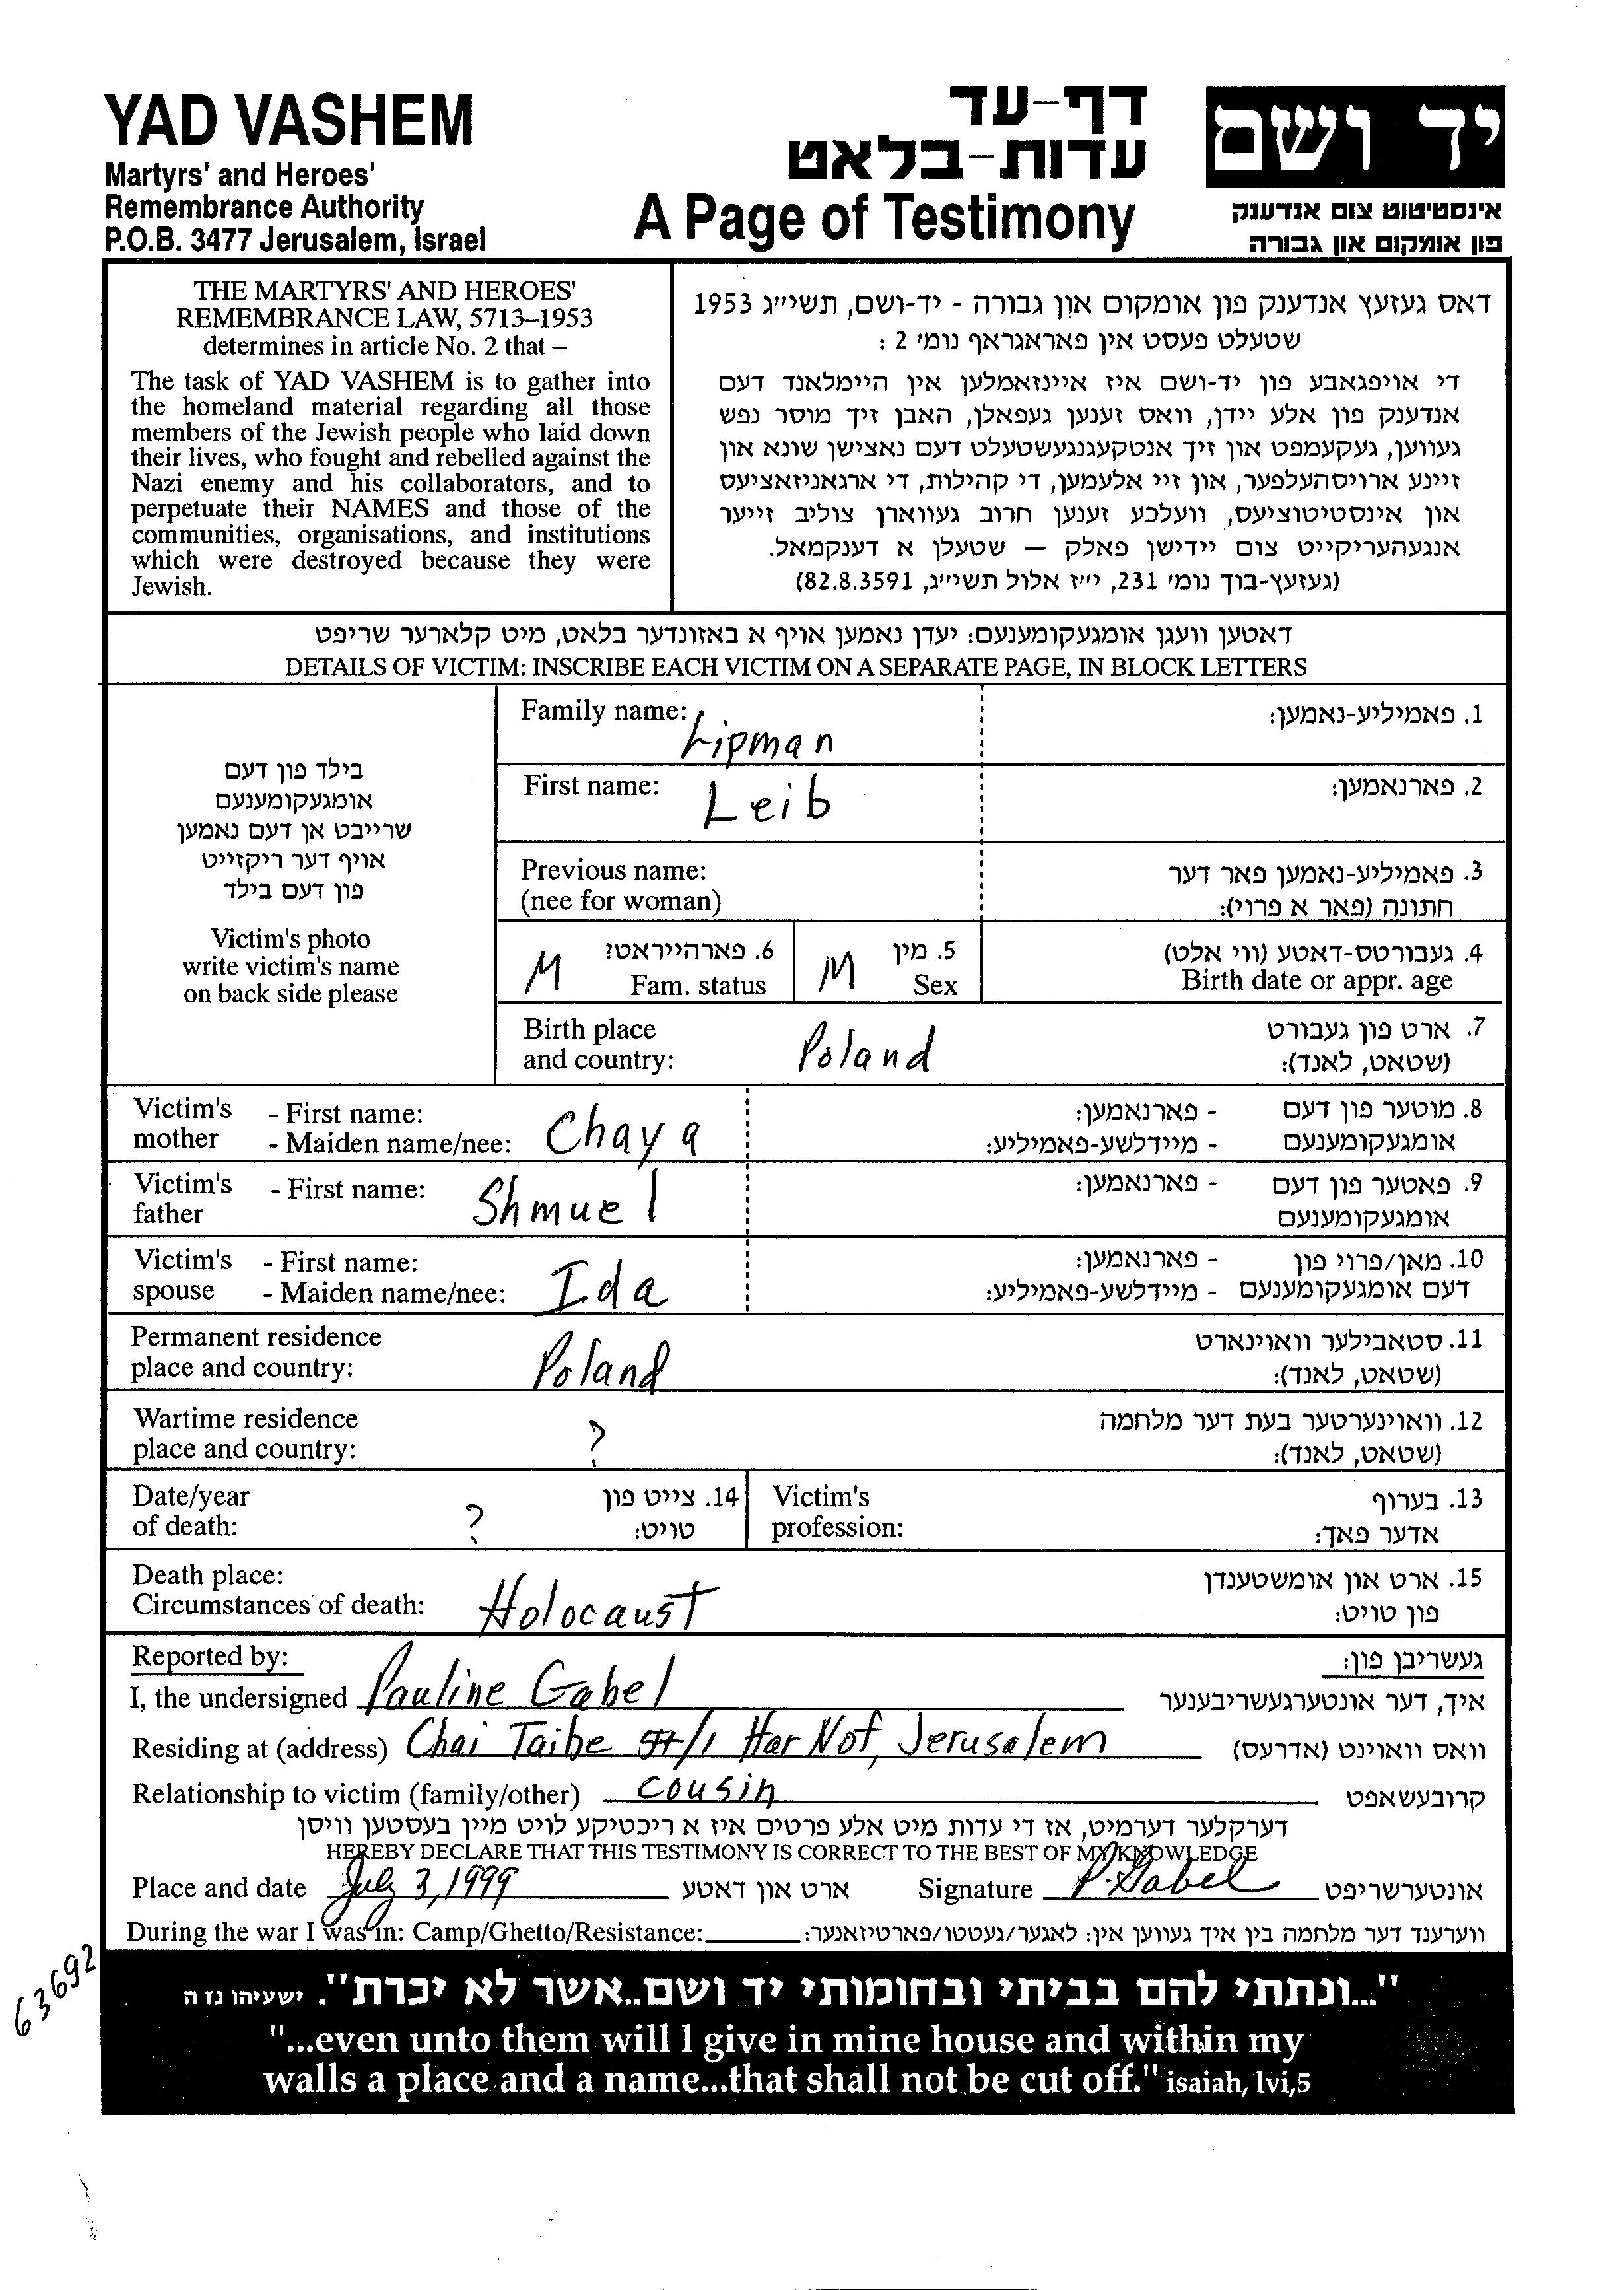 YAD VASHEM
Martyrs' and Heroes'
Remembrance Authority
P.O.B. 3477 Jerusalem, Israel
דף-עד
עדות-בלאט
A Page of Testimony
יד ושם
אינסטיטוט צום אנדענק
פון אומקום און גבורה
THE MARTYRS' AND HEROES'
REMEMBRANCE LAW, 5713–1953
determines in article No. 2 that –
The task of YAD VASHEM is to gather into
the homeland material regarding all those
members of the Jewish people who laid down
their lives, who fought and rebelled against the
Nazi enemy and his collaborators, and to
perpetuate their NAMES and those of the
communities, organisations, and institutions
which were destroyed because they were
Jewish.
דאס געזעץ אנדענק פון אומקום און גבורה - יד-ושם, תשי״ג 1953
שטעלט פעסט אין פאראגראף נומ׳ 2 :
די אויפגאבע פון יד-ושם איז איינזאמלען אין היימלאנד דעם
אנדענק פון אלע יידן, וואס זענען געפאלן, האבן זיך מוסר נפש
געווען, געקעמפט און זיך אנטקעגנגעשטעלט דעם נאצישן שונא און
זיינע ארויסהעלפער, און זיי אלעמען, די קהילות, די ארגאניזאציעס
און אינסטיטוציעס, וועלכע זענען חרוב געווארן צוליב זייער
אנגעהעריקייט צום יידישן פאלק — שטעלן א דענקמאל.
(געזעץ-בוך נומ׳ 231, י״ז אלול תשי״ג, 82.8.3591)
דאטען וועגן אומגעקומענעם: יעדן נאמען אויף א באזונדער בלאט, מיט קלארער שריפט
DETAILS OF VICTIM: INSCRIBE EACH VICTIM ON A SEPARATE PAGE, IN BLOCK LETTERS
בילד פון דעם
אומגעקומענעם
שרייבט אן דעם נאמען
אויף דער ריקזייט
פון דעם בילד
Victim's photo
write victim's name
on back side please
Family name: Lipman 1. פאמיליע-נאמען:
First name: Leib 2. פארנאמען:
Previous name: 3. פאמיליע-נאמען פאר דער
(nee for woman) חתונה (פאר א פרוי):
M 6. פארהייראט? M 5. מין 4. געבורטס-דאטע (ווי אלט)
Fam. status Sex Birth date or appr. age
Birth place 7. ארט פון געבורט
and country: Poland (שטאט, לאנד):
Victim's - First name: - פארנאמען: 8. מוטער פון דעם
mother - Maiden name/nee: Chaya - מיידלשע-פאמיליע: אומגעקומענעם
Victim's - First name: Shmuel - פארנאמען: 9. פאטער פון דעם
father אומגעקומענעם
Victim's - First name: - פארנאמען: 10. מאן/פרוי פון
spouse - Maiden name/nee: Ida - מיידלשע-פאמיליע: דעם אומגעקומענעם
Permanent residence 11. סטאבילער וואוינארט
place and country: Poland (שטאט, לאנד):
Wartime residence 12. וואוינערטער בעת דער מלחמה
place and country: ? (שטאט, לאנד):
Date/year 14. צייט פון Victim's 13. בערוף
of death: ? טויט: profession: אדער פאך:
Death place: 15. ארט און אומשטענדן
Circumstances of death: Holocaust פון טויט:
Reported by: געשריבן פון:
I, the undersigned Pauline Gabel איך, דער אונטערגעשריבענער
Residing at (address) Chai Taibe 54/1 Har Nof, Jerusalem וואס וואוינט (אדרעס)
Relationship to victim (family/other) cousin קרובעשאפט
דערקלער דערמיט, אז די עדות מיט אלע פרטים איז א ריכטיקע לויט מיין בעסטען וויסן
HEREBY DECLARE THAT THIS TESTIMONY IS CORRECT TO THE BEST OF MY KNOWLEDGE
Place and date July 3, 1999 ארט און דאטע Signature P. Gabel אונטערשריפט
During the war I was in: Camp/Ghetto/Resistance: ווערענד דער מלחמה בין איך געווען אין: לאגער/געטטו/פארטיזאנער:
63692
"...ונתתי להם בביתי ובחומותי יד ושם..אשר לא יכרת". ישעיהו נז ה
"...even unto them will I give in mine house and within my
walls a place and a name...that shall not be cut off." isaiah, lvi,5